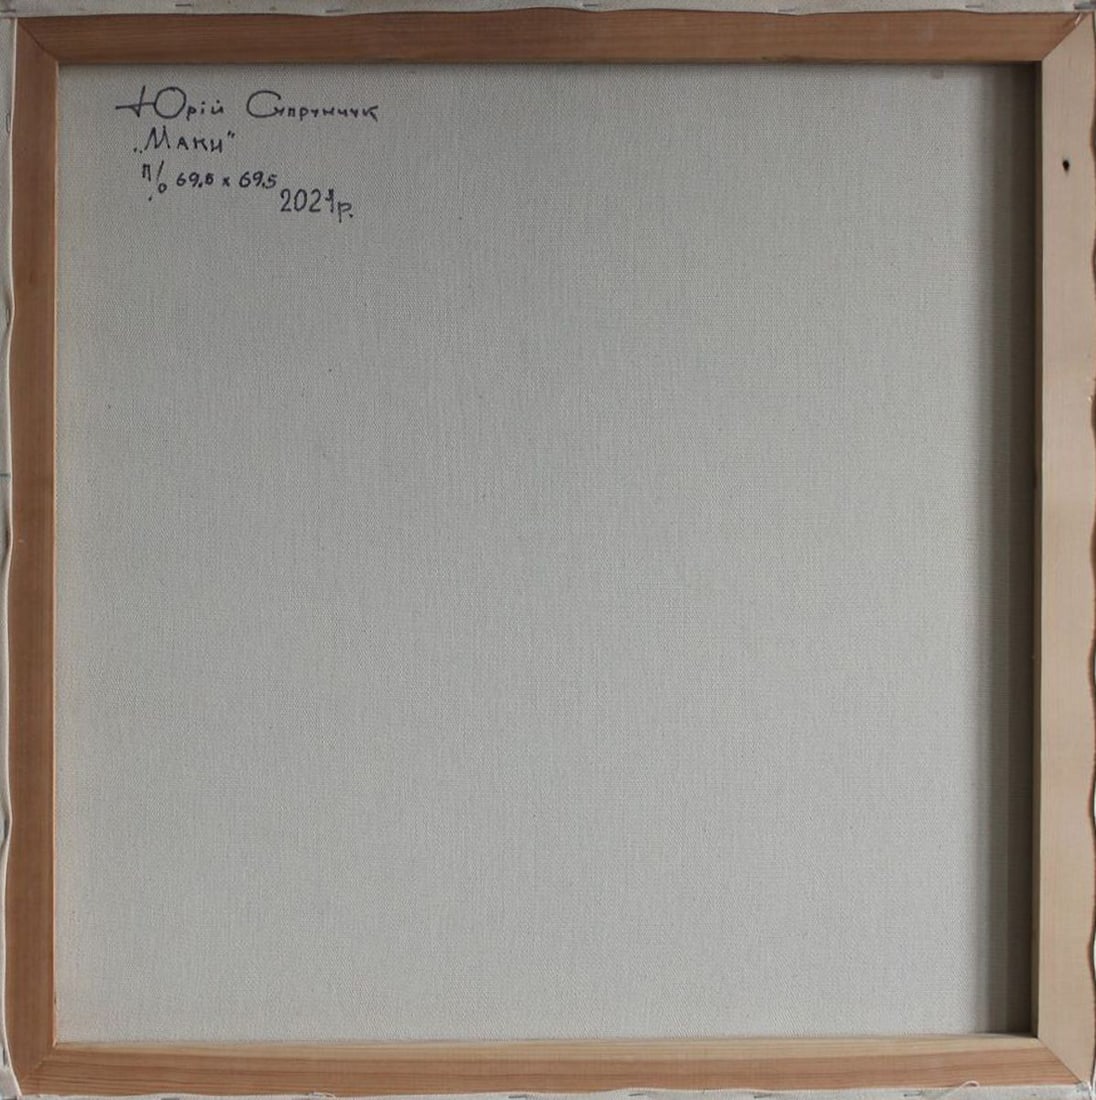 Юрій Супрунчук
„Маки"
п/о 69.5 x 69.5
2021р.